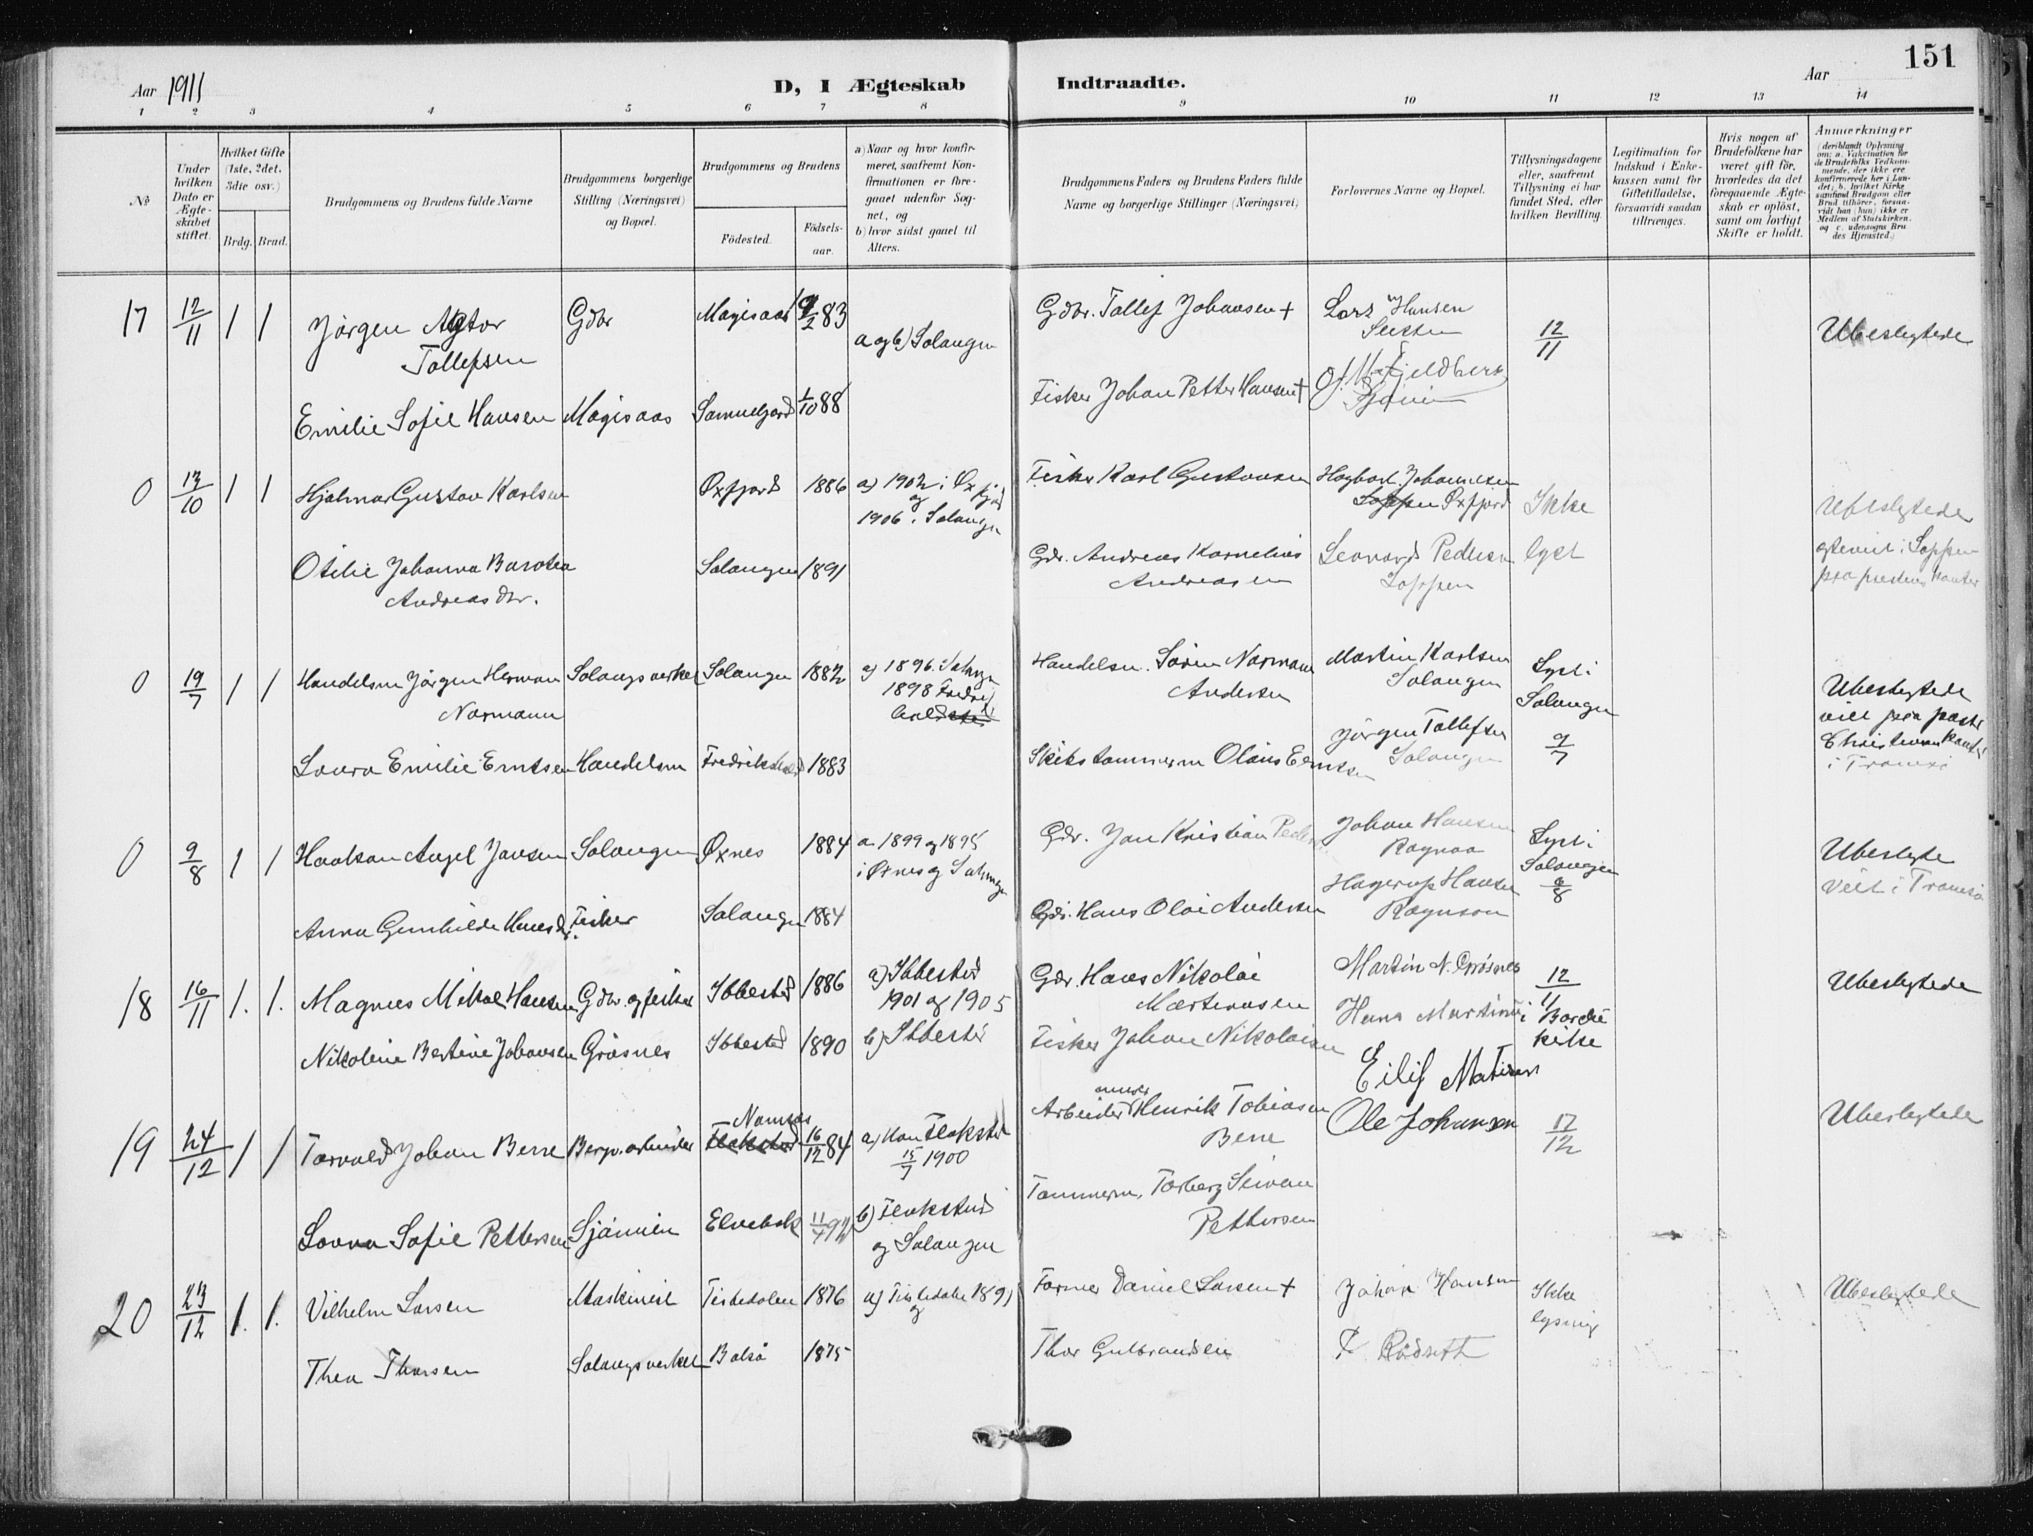 151
Aar 1911
D, I Ægteskab Indtraadte.
Aar
1 2 3 4 5 6 7 8 9 10 11 12 13 14
No
Under hvilken Dato er Ægteskabet stiftet.
Hvilket Gifte (1ste, 2det, 3die osv.)
Brdg. Brud.
Brudgommens og Brudens fulde Navne
Brudgommens borgerlige Stilling (Næringsvei) og Bopæl.
Brudgommens og Brudens
Födested.
Födselsaar.
a) Naar og hvor konfirmeret, saafremt Konfirmationen er foregaaet udenfor Sognet, og
b) hvor sidst gaaet til Alters.
Brudgommens Faders og Brudens Faders fulde Navne og borgerlige Stillinger (Næringsvei)
Forlovernes Navne og Bopæl.
Tillysningsdagene eller, saafremt Tillysning ei har fundet Sted, efter hvilken Bevilling.
Legitimation for Indskud i Enkekassen samt for Giftetilladelse, forsaavidt saadan tiltrænges.
Hvis nogen af Brudefolkene har været gift för, hvorledes da det foregaaende Ægteskab er oplöst, samt om lovligt Skifte er holdt.
Anmærkninger (deriblandt Oplysning om: a. Vakcination for de Brudefolks Vedkommende, der ikke ere konfirmerede her i Landet; b. hvilket Kirkesamfund Brudgom eller Brud tilhörer, forsaavidt han (hun) ikke er Medlem af Statskirken, og c. udensogns Brudes Hjemsted.)
17 12/11 1 1 Jörgen Agtor Tollefsen Gdbr Magisaas 9/2 83 a og b) Salangen Gdbr. Tollef Johansen + Lars Hansen 12/11 Ubeslegtede
Emilie Sofie Hansen Magisaas 1/10 88 Fisker Johan Petter Hansen +
0 13/10 1 1 Hjalmar Gustav Karlsen Øxfjord 1886 a) 1902 i Øxfjord og 1906 i Salangen Fisker Karl Gustavsen Hagbart Johannesen Øxfjord Ikke lyst Ubeslegtede
Otilie Johanna Andreasdtr. Salangen 1891 Gdr. Andreas Kornelius Andreasen Leonard Pedersen Loppen
0 19/7 1 1 Handelsm Jörgen Herman Normann Salangsverket Salangen 1882 a) 1896 Salangen 1898 Handelsm. Sören Normann Andersen Martin Karlsen Salangen Lyst i Salangen 9/7 Ubeslegtede
Laura Emilie Erntsen Handelsm Fredrikshald 1883 Skibstømmerm Olaus Erntsen Jörgen Tollefsen Salangen
0 9/8 1 1 Haakon Angel Jansen Salangen Øxnes 1884 a. 1899 og 1895 i Øxnes og Salangen Gdr. Jan Kristian Johan Hansen Lyst i Salangen 6/8 Ubeslegte Viet i Tromsö
Anna Gunhilde Hansdtr. Fisker Salangen 1884 Gdr. Hans Olai Andersen Hagerup Hansen
18 16/11 1. 1. Magnus Mikal Hansen Gdbr. og fisker Ibbestad 1886 a) Ibbestad 1901 og 1905 Gdr. Hans Nikolai Martinusen Martin N. Grösnes 12/11 i kirke Ubeslegtede
Nikoline Bertine Johansen Grösnes Ibbestad 1890 b) Ibbestad Fisker Johan Nikolaisen
19 24/12 1 1 Torvald Johan Berre Bergv. arbeider Namsos Flakstad 16/12 84 a) Han Flakstad 15/7 1900 Arbeider Henrik Tobiasen Berre Eilif Ole Johansen 17/12 Ubeslegtede
Laura Sofie Pettersen Sjöveien Elvebak 11/4 92 b) Flakstad og Salangen Tømmerm. Torberg Pettersen
20 23/12 1. 1. Vilhelm Larsen Maskinist Fiskedalen 1876 Daniel Larsen + Johan Hansen Ikke lysning Ubeslegtede
Thea Thorsen Salangsverket Balsö 1875 Thor Gulbrandsen Rödseth